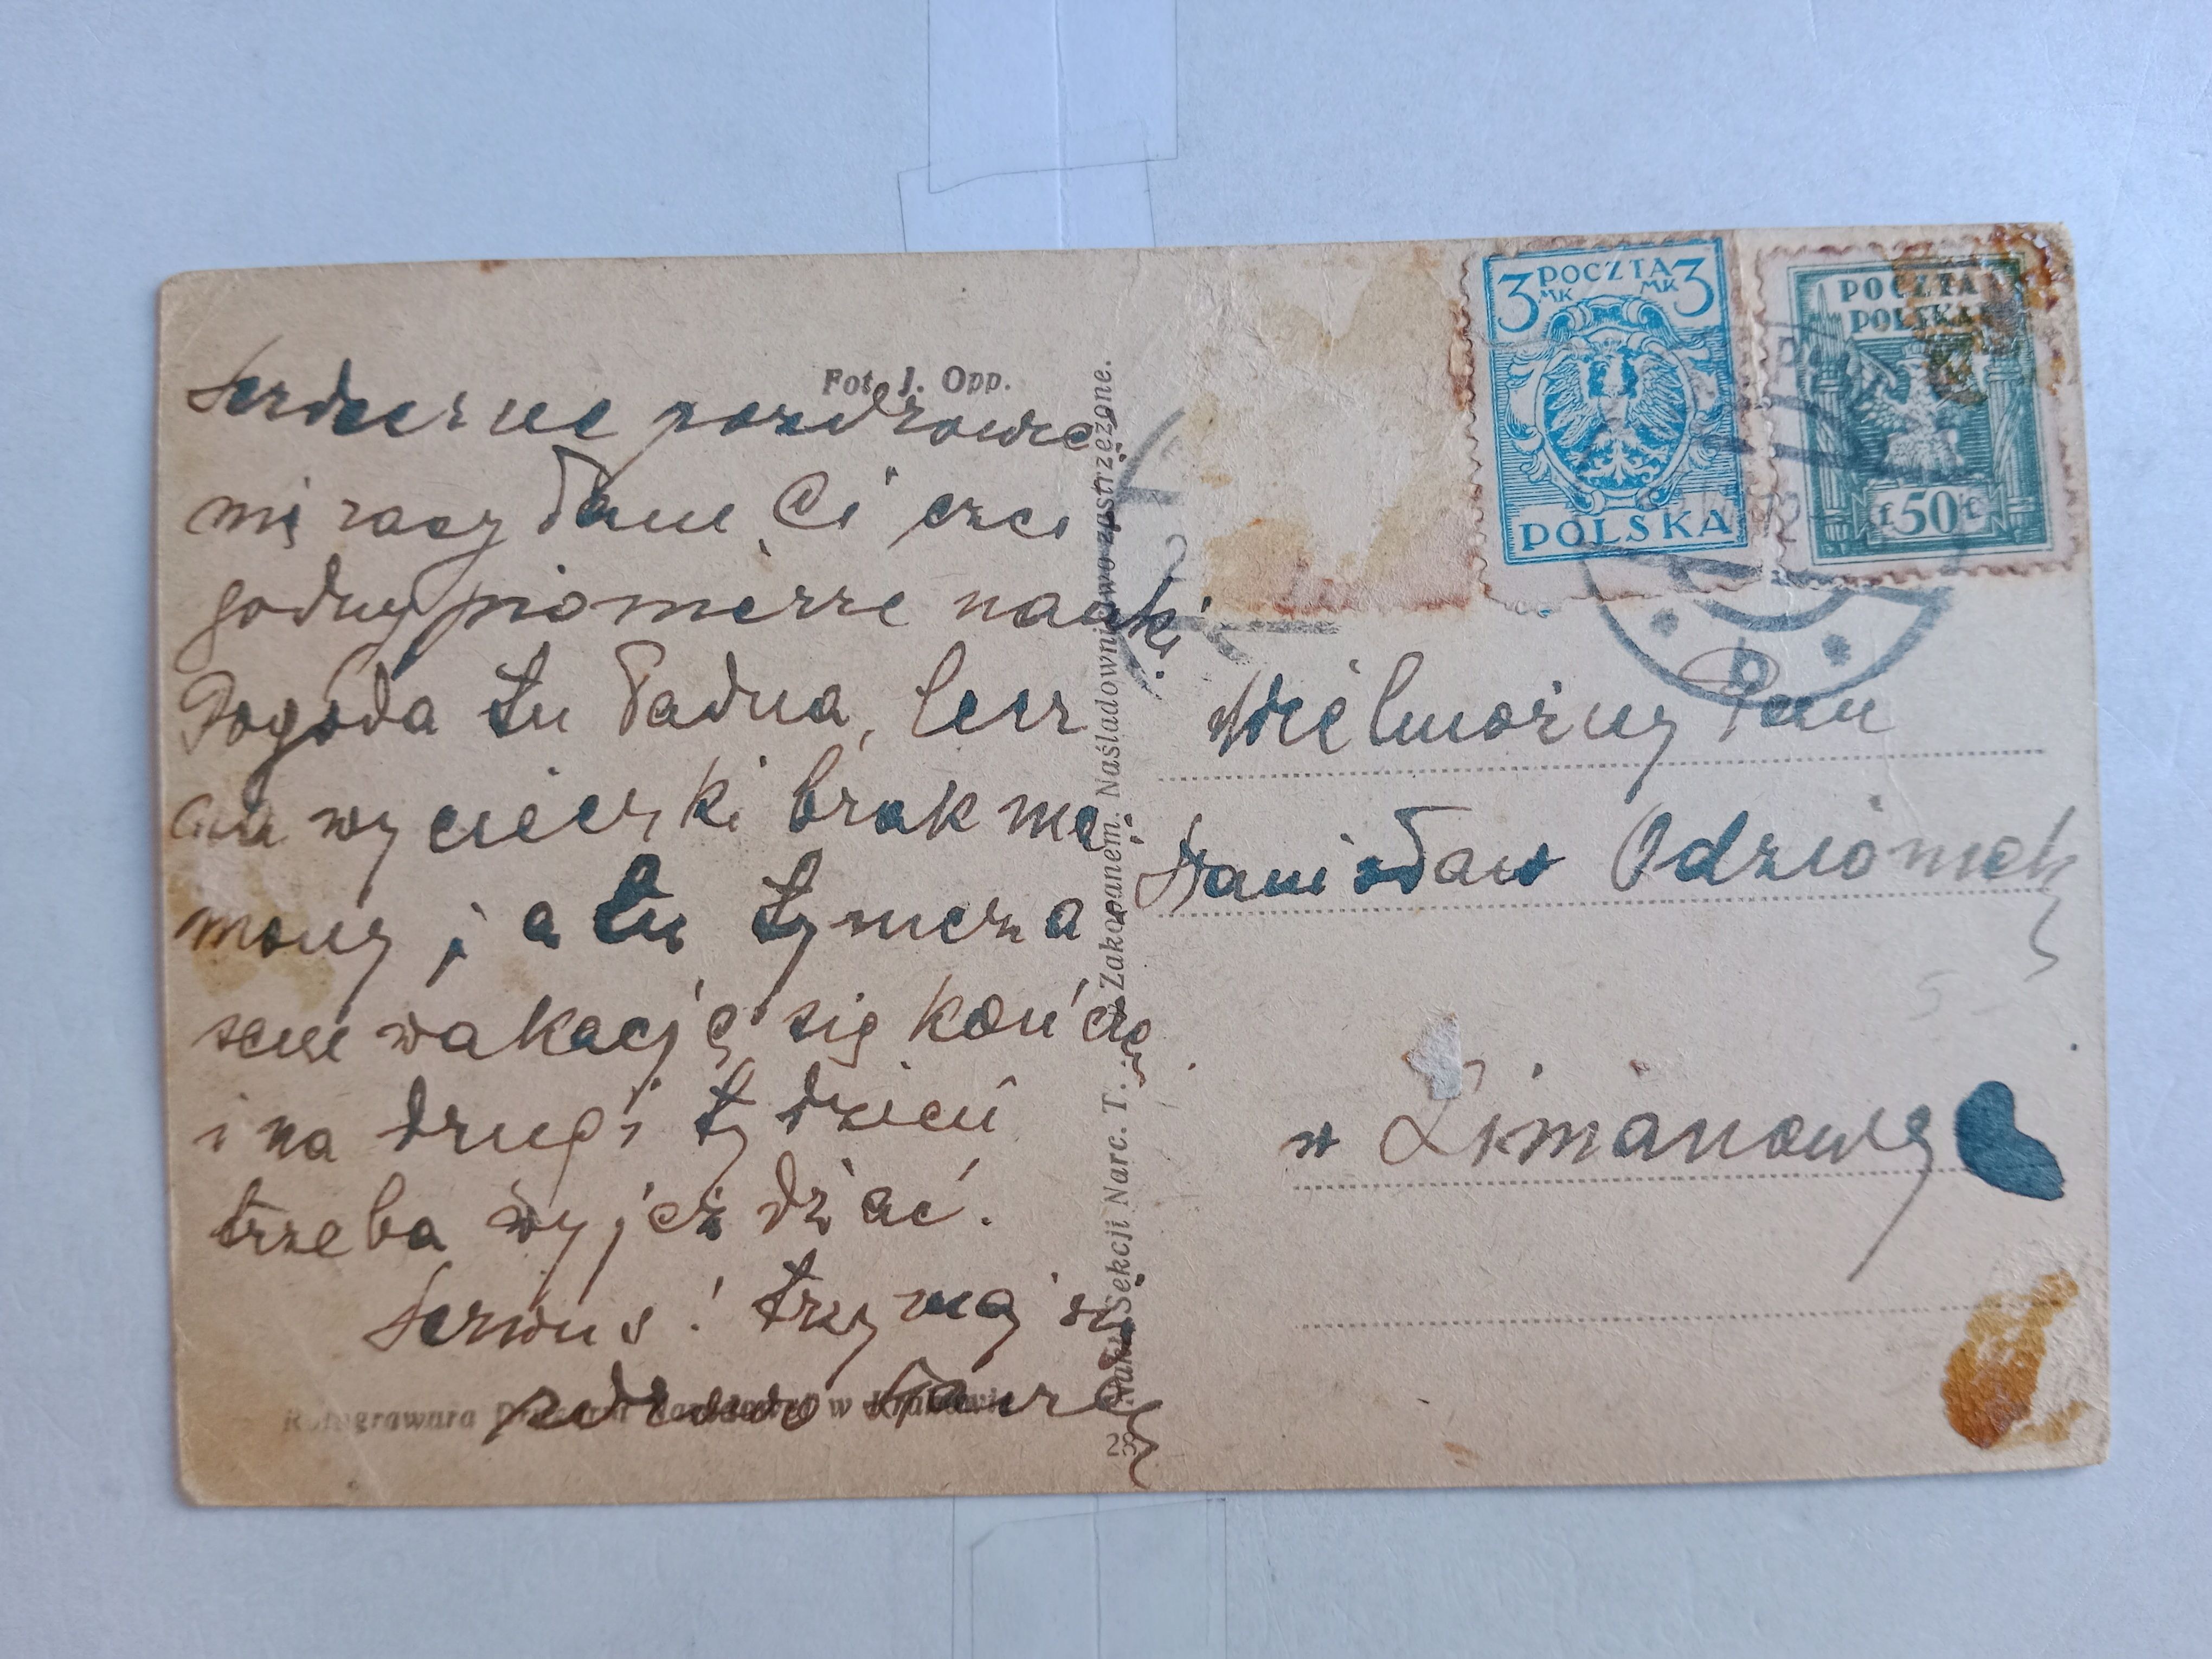 Fot. J. Opp.
Serdeczne pozdrowie
nia zasyłam Ci czci
godny pionierze nauki.
Pogoda tu ładna, lecz
na wycieczki brak mi
mony, a tu tymcza
sem wakacje się kończą
i na drugi tydzień
trzeba wyjeżdżać.
Serwus! trzymaj się
zdrowo
Rotograwura w Krakowie
Nakł. Sekcji Narc. T. T. Zakopanem. Naśladownictwo zastrzeżone.
3 POCZTA 3
MK MK
POLSKA
POCZTA
POLSKA
f 50 f
b
Wielmożny Pan
Stanisław Odziomek
w Limanowej